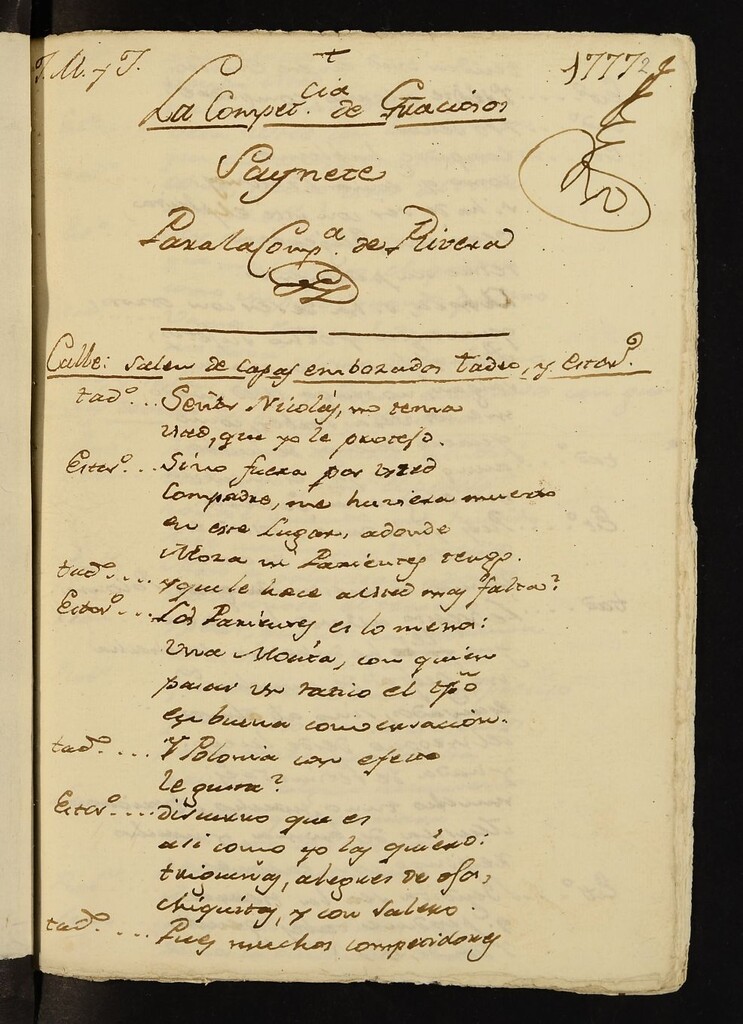 J. M. y J. + 1777
La Compet.cia de Graciosos
Saynete
Para la Comp.a de Rivera
Calle: salen de capas embozados Tadeo, y Estev.o
tad.o... Señor Nicolás, no tema
usted, que yo le protejo.
Estev.o... Sino fuera por usted
Compadre, me huviera muerto
en este Lugar, adonde
Moza ni Parientes tengo.
tad.o.... y que le hace a usted mas falta?
Estev.o... Los Parientes es lo menos:
una Mocita, con quien
pasar un ratito el tpõ
en buena conversación.
tad.o.... Y Polonia con efecto
le gusta?
Estev.o.... discurro que es
asi como yo las quiero:
trigueñas, alegres de ojos,
chiquitas, y con salero.
tad.o.... Pues muchos competidores